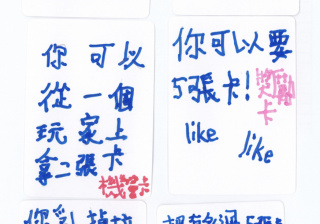 你 可以
從 一 個
玩 家 上
拿二張卡
機警卡
你可以要
5張卡!獎勵
卡
like
like